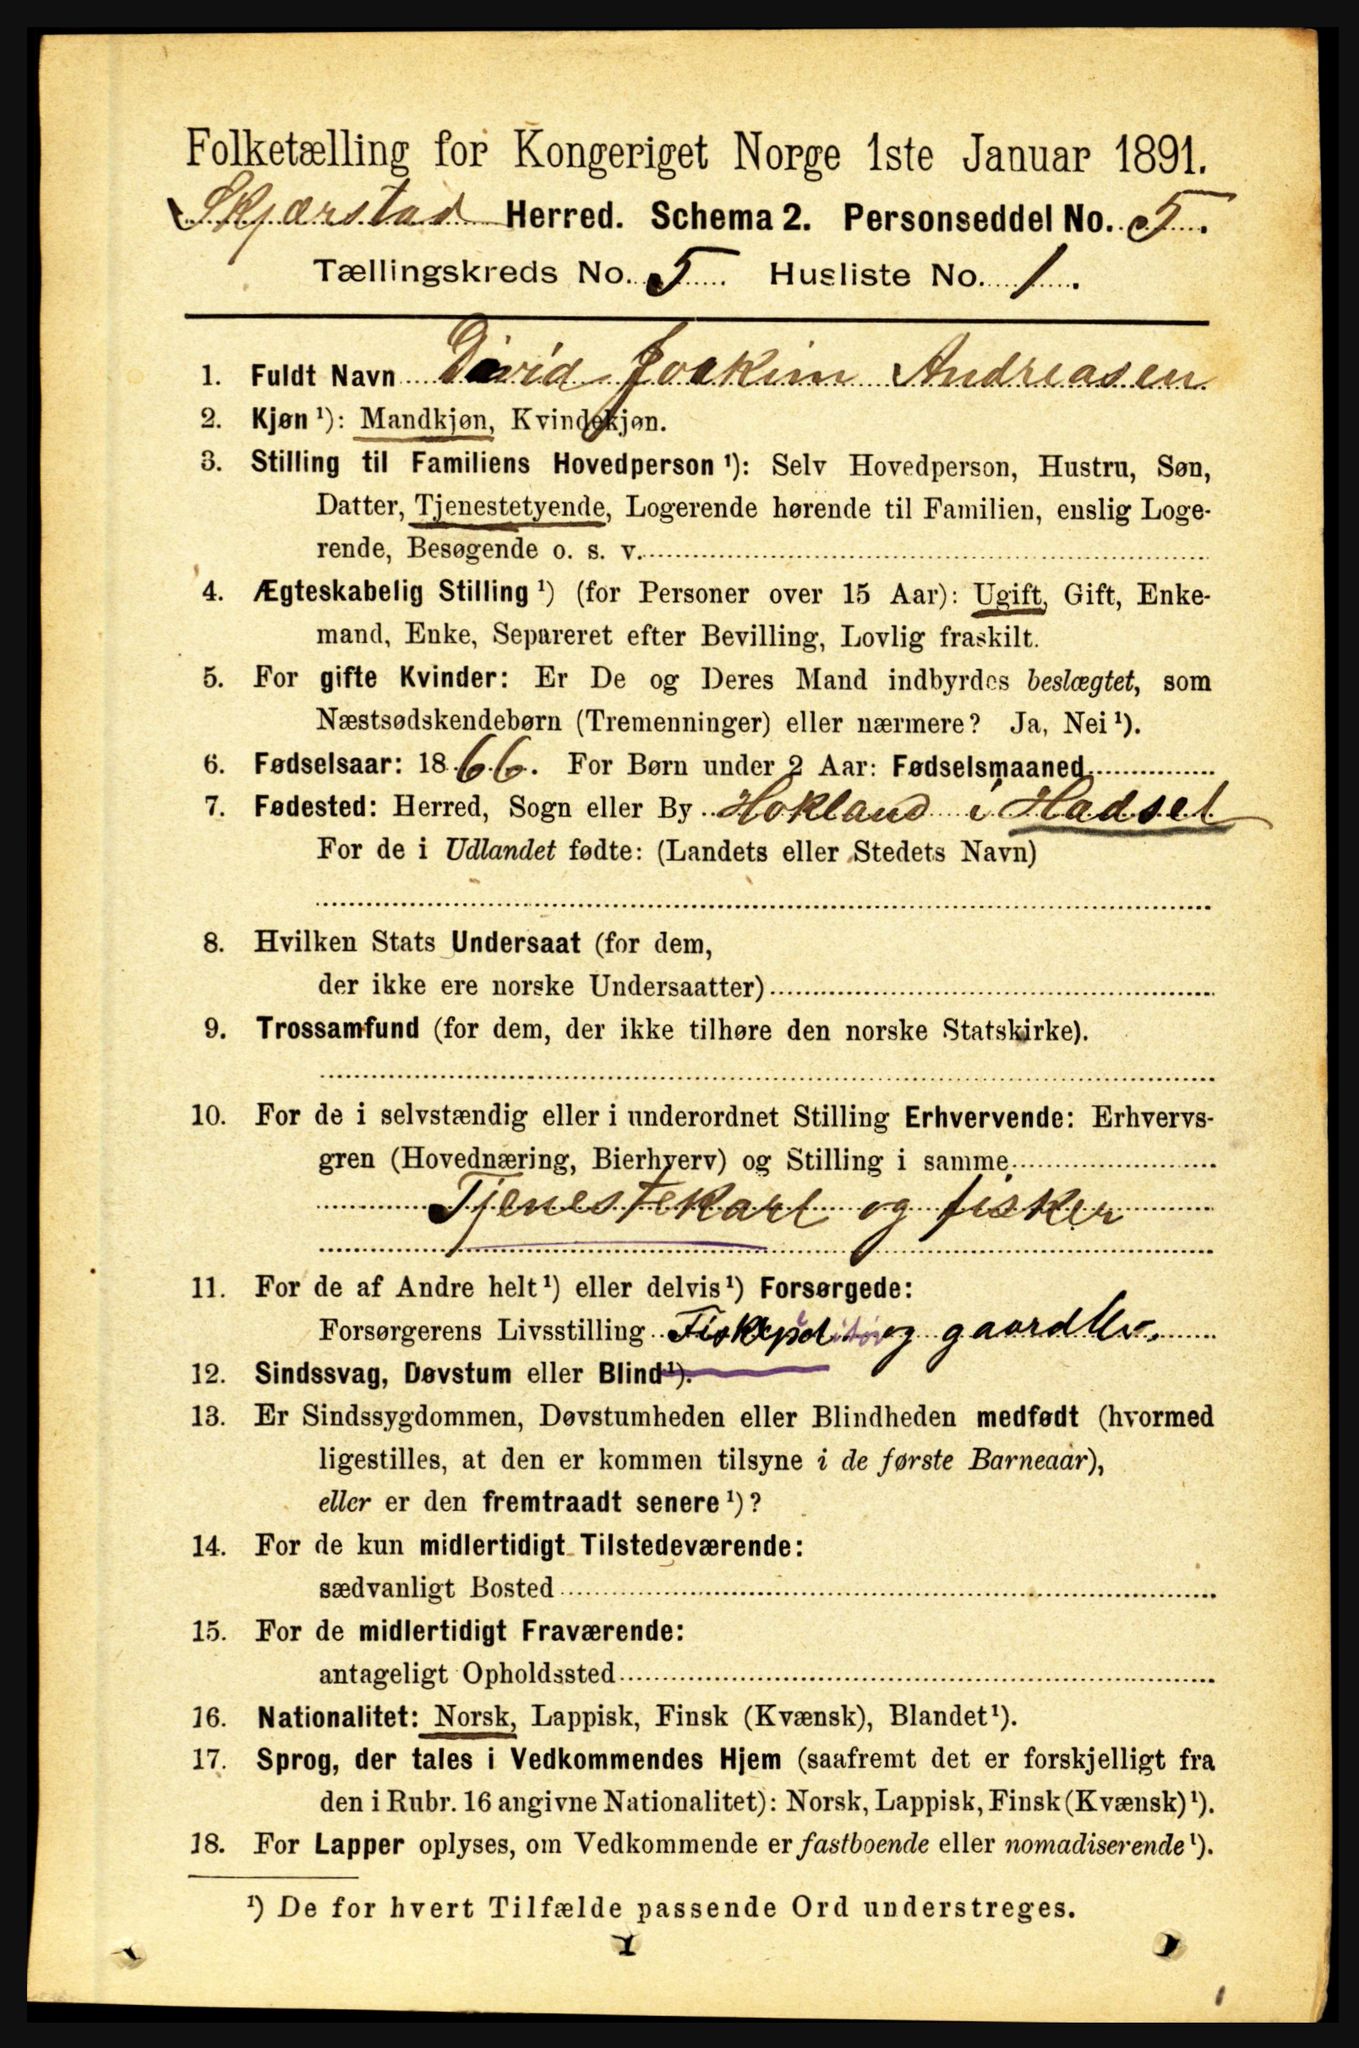 Folketælling for Kongeriget Norge 1ste Januar 1891.
Skjærstad Herred. Schema 2. Personseddel No. 5.
Tællingskreds No. 5 Husliste No. 1.
1. Fuldt Navn David Joakim Andreasen
2. Kjøn ¹): Mandkjøn, Kvindekjøn.
3. Stilling til Familiens Hovedperson ¹): Selv Hovedperson, Hustru, Søn,
Datter, Tjenestetyende, Logerende hørende til Familien, enslig Loge-
rende, Besøgende o. s. v.
4. Ægteskabelig Stilling ¹) (for Personer over 15 Aar): Ugift, Gift, Enke-
mand, Enke, Separeret efter Bevilling, Lovlig fraskilt.
5. For gifte Kvinder: Er De og Deres Mand indbyrdes beslægtet, som
Næstsødskendebørn (Tremenninger) eller nærmere? Ja, Nei ¹).
6. Fødselsaar: 1866. For Børn under 2 Aar: Fødselsmaaned
7. Fødested: Herred, Sogn eller By Hokland i Hadsel
For de i Udlandet fødte: (Landets eller Stedets Navn)
8. Hvilken Stats Undersaat (for dem,
der ikke ere norske Undersaatter)
9. Trossamfund (for dem, der ikke tilhøre den norske Statskirke).
10. For de i selvstændig eller i underordnet Stilling Erhvervende: Erhvervs-
gren (Hovednæring, Bierhverv) og Stilling i samme
Tjenestekarl og fisker
11. For de af Andre helt ¹) eller delvis ¹) Forsørgede:
Forsørgerens Livsstilling og
12. Sindssvag, Døvstum eller Blind ¹).
13. Er Sindssygdommen, Døvstumheden eller Blindheden medfødt (hvormed
ligestilles, at den er kommen tilsyne i de første Barneaar),
eller er den fremtraadt senere ¹)?
14. For de kun midlertidigt Tilstedeværende:
sædvanligt Bosted
15. For de midlertidigt Fraværende:
antageligt Opholdssted
16. Nationalitet: Norsk, Lappisk, Finsk (Kvænsk), Blandet ¹).
17. Sprog, der tales i Vedkommendes Hjem (saafremt det er forskjelligt fra
den i Rubr. 16 angivne Nationalitet): Norsk, Lappisk, Finsk (Kvænsk) ¹).
18. For Lapper oplyses, om Vedkommende er fastboende eller nomadiserende ¹).
¹) De for hvert Tilfælde passende Ord understreges.